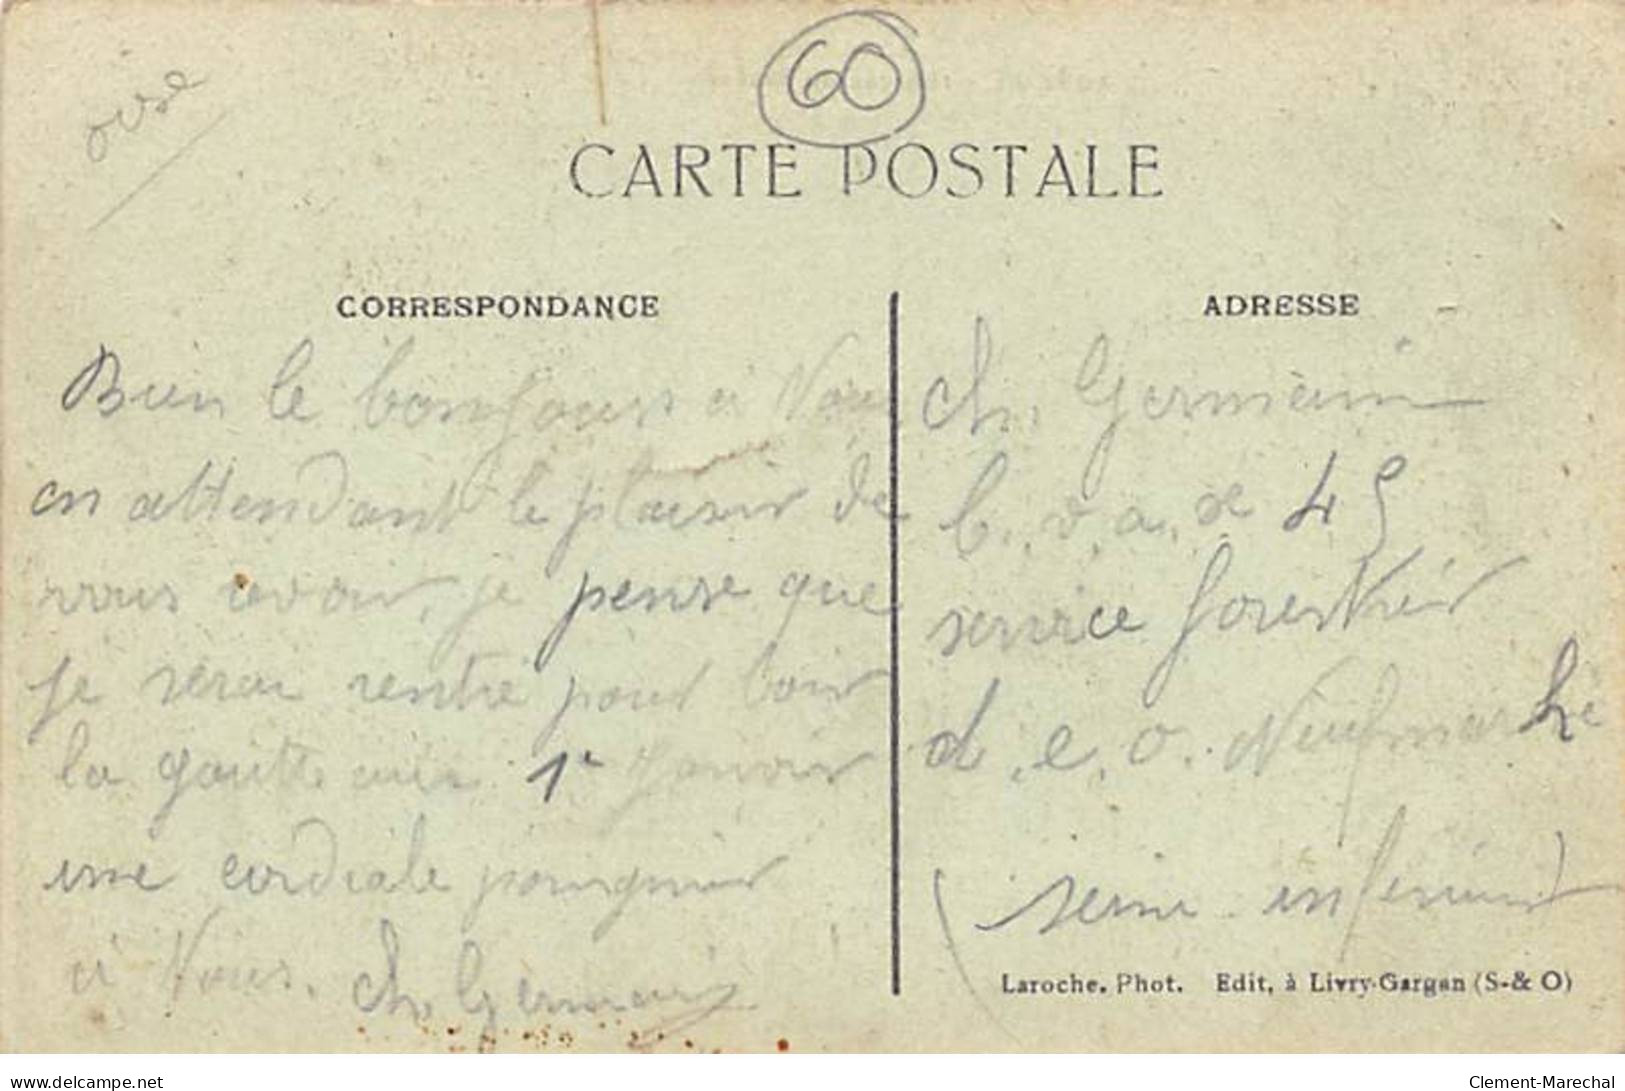 oise
60
CARTE POSTALE
CORRESPONDANCE
Bien le bonjour à Vous
en attendant le plaisir de
vous avoir, je pense que
je serai rentré pour boir
la goutte 1r Janvoir
une cordiale poingnier
à Vous. Ch. Germain
ADRESSE
Ch. Germain
b. v. a. x 45
service forestier
d. e. o. Neufmarché
(seine inferieur)
Laroche. Phot. Edit, à Livry-Gargan (S-& O)
www.delcampe.net
Clement-Marechal